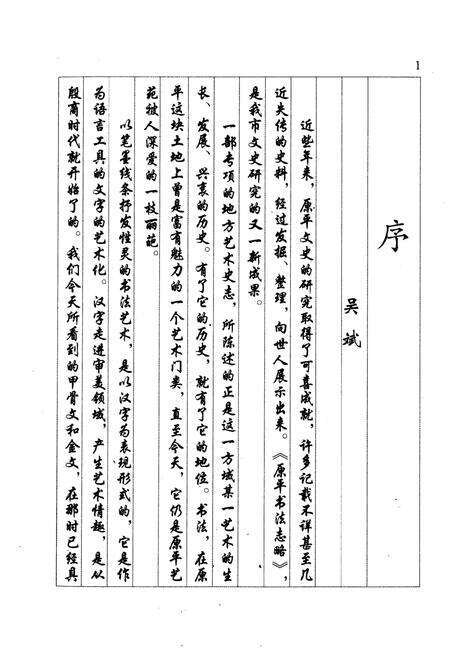 1
序
吴斌
近些年来，原平文史的研究取得了可喜成就，许多记载不详甚至几
近失传的史料，经过发掘、整理，向世人展示出来。《原平书法志略》，
是我市文史研究的又一新成果。
一部专项的地方艺术史志，所陈述的正是这一方域某一艺术的生
长、发展、兴衰的历史。有了它的历史，就有了它的地位。书法，在原
平这块土地上曾是富有魅力的一个艺术门类，直至今天，它仍是原平艺
苑被人深爱的一枝丽葩。
以笔墨线条抒发性灵的书法艺术，是以汉字为表现形式的，它是作
为语言工具的文字的艺术化。汉字走进审美领域，产生艺术情趣，是从
殷商时代就开始了的。我们今天所看到的甲骨文和金文，在那时已经具